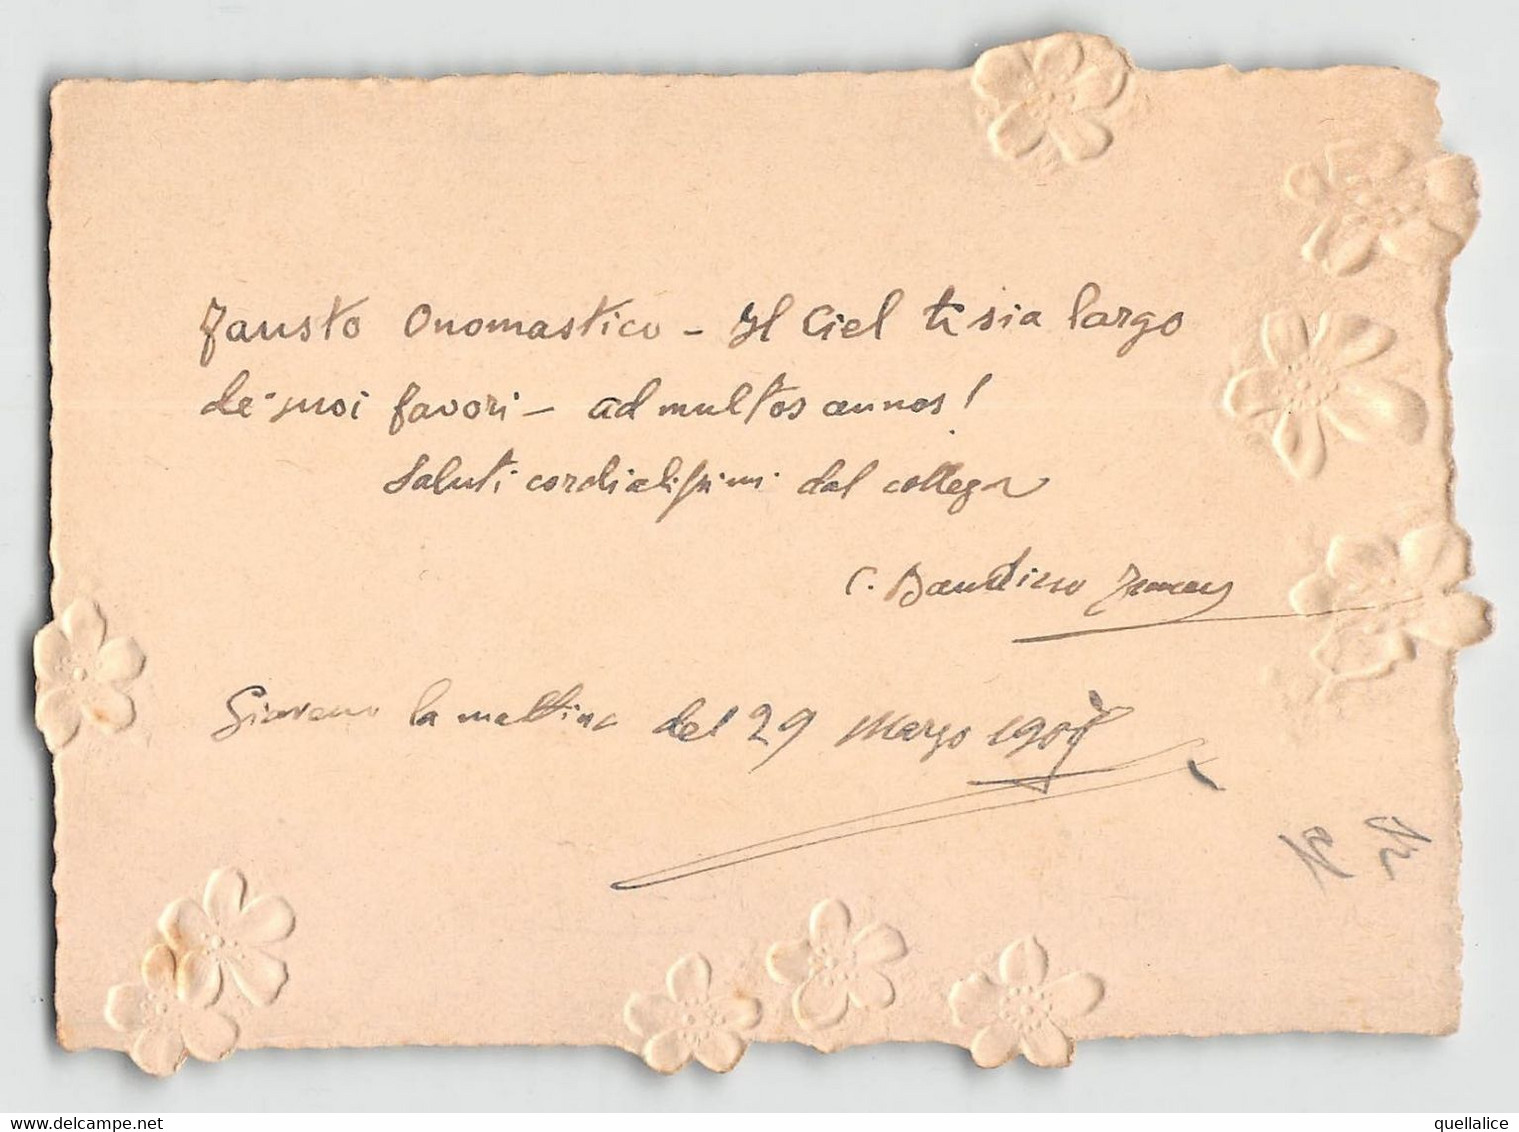 Fausto Onomastico – Il Ciel ti sia largo
de' suoi favori – ad multos annos!
Saluti cordialissimi dal collega
C. Baudino
Giaveno la mattina del 29 Marzo 190
quellalice